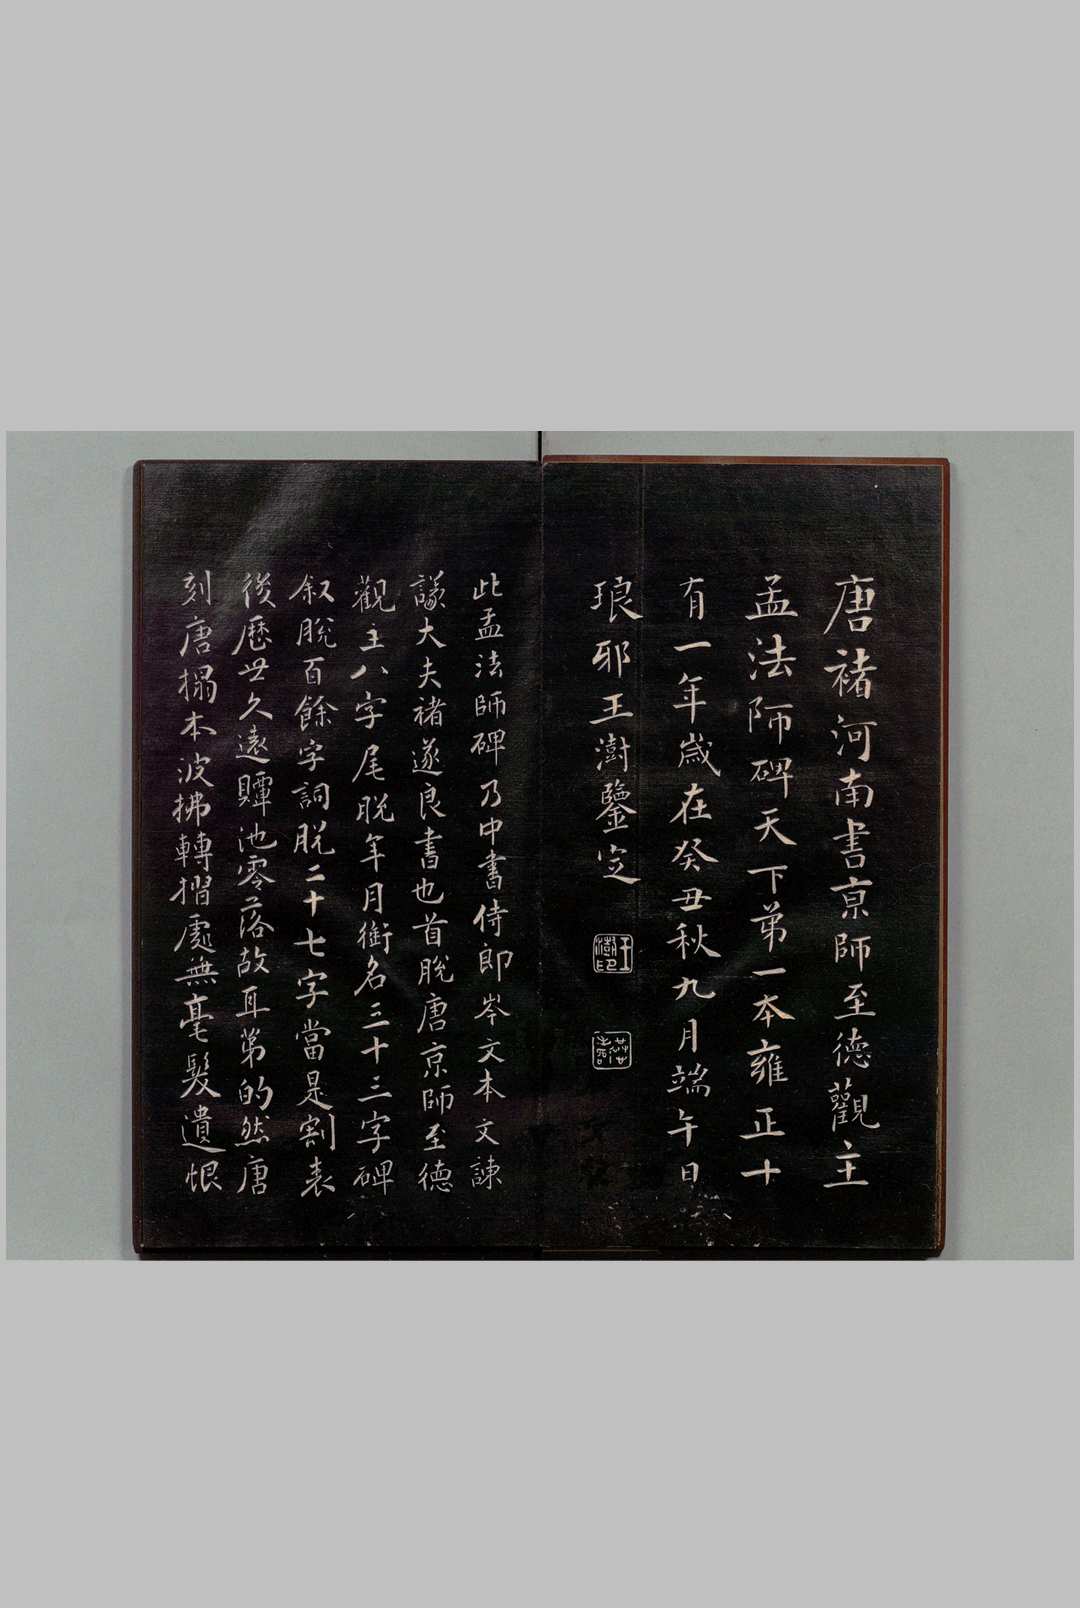 唐褚河南書京師至德觀主
孟法師碑天下第一本雍正十
有一年歲在癸丑秋九月端午日
琅邪王澍鑒定
王澍印
此孟法師碑乃中書侍郎岑文本文諫
議大夫褚遂良書也首脫唐京師至德
觀主八字尾脫年月銜名三十三字碑
叙脫百餘字詞脫二十七字當是割表
後歷世久遠贉池零落故耳第的然唐
刻唐搨本波拂轉摺處無毫髮遺恨